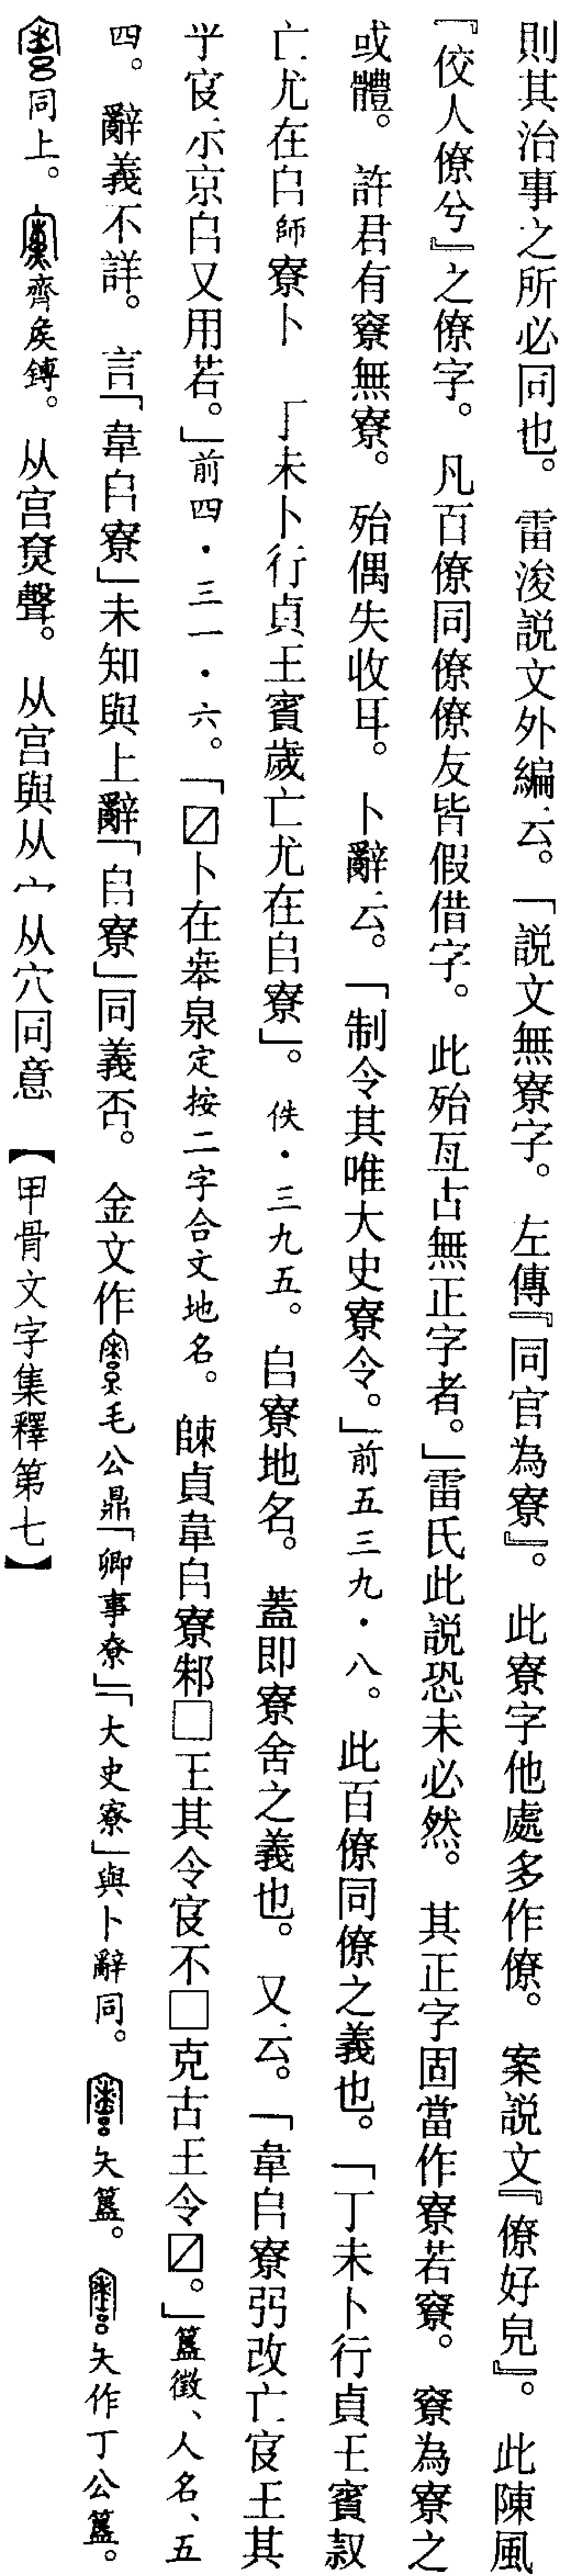 則其治事之所必同也。　雷浚説文外編云。「説文無寮字。　左傳『同官為寮』。　此寮字他處多作僚。　案説文『僚好皃』。　此陳風
『佼人僚兮』之僚字。　凡百僚同僚僚友皆假借字。　此殆亙古無正字者。」雷氏此説恐未必然。　其正字固當作寮若竂。　竂為寮之
或體。　許君有竂無寮。　殆偶失收耳。　卜辭云。「制令其唯大史寮令。」前五三九・八。　此百僚同僚之義也。「丁未卜行貞王賓叙
亡尤在𠂤師寮卜　　丁未卜行貞王賓歲亡尤在𠂤寮」。　佚・三九五。　𠂤寮地名。　蓋即寮舍之義也。　又云。「韋𠂤寮弜改亡㝛王其
乎㝛示京𠂤又用若。」前四・三一・六。「〼卜在𠦪泉定按二字合文地名。　𠂤貞韋𠂤寮□王其令㝛不□克古王令〼。」簠徵、人名、五
四。　辭義不詳。　言「韋𠂤寮」未知與上辭「𠂤寮」同義否。　金文作毛公鼎「卿事寮」「大史寮」與卜辭同。　夨簋。　夨作丁公簋。
同上。　齊矦鎛。　从宫尞聲。　从宫與从宀从穴同意　【甲骨文字集釋第七】